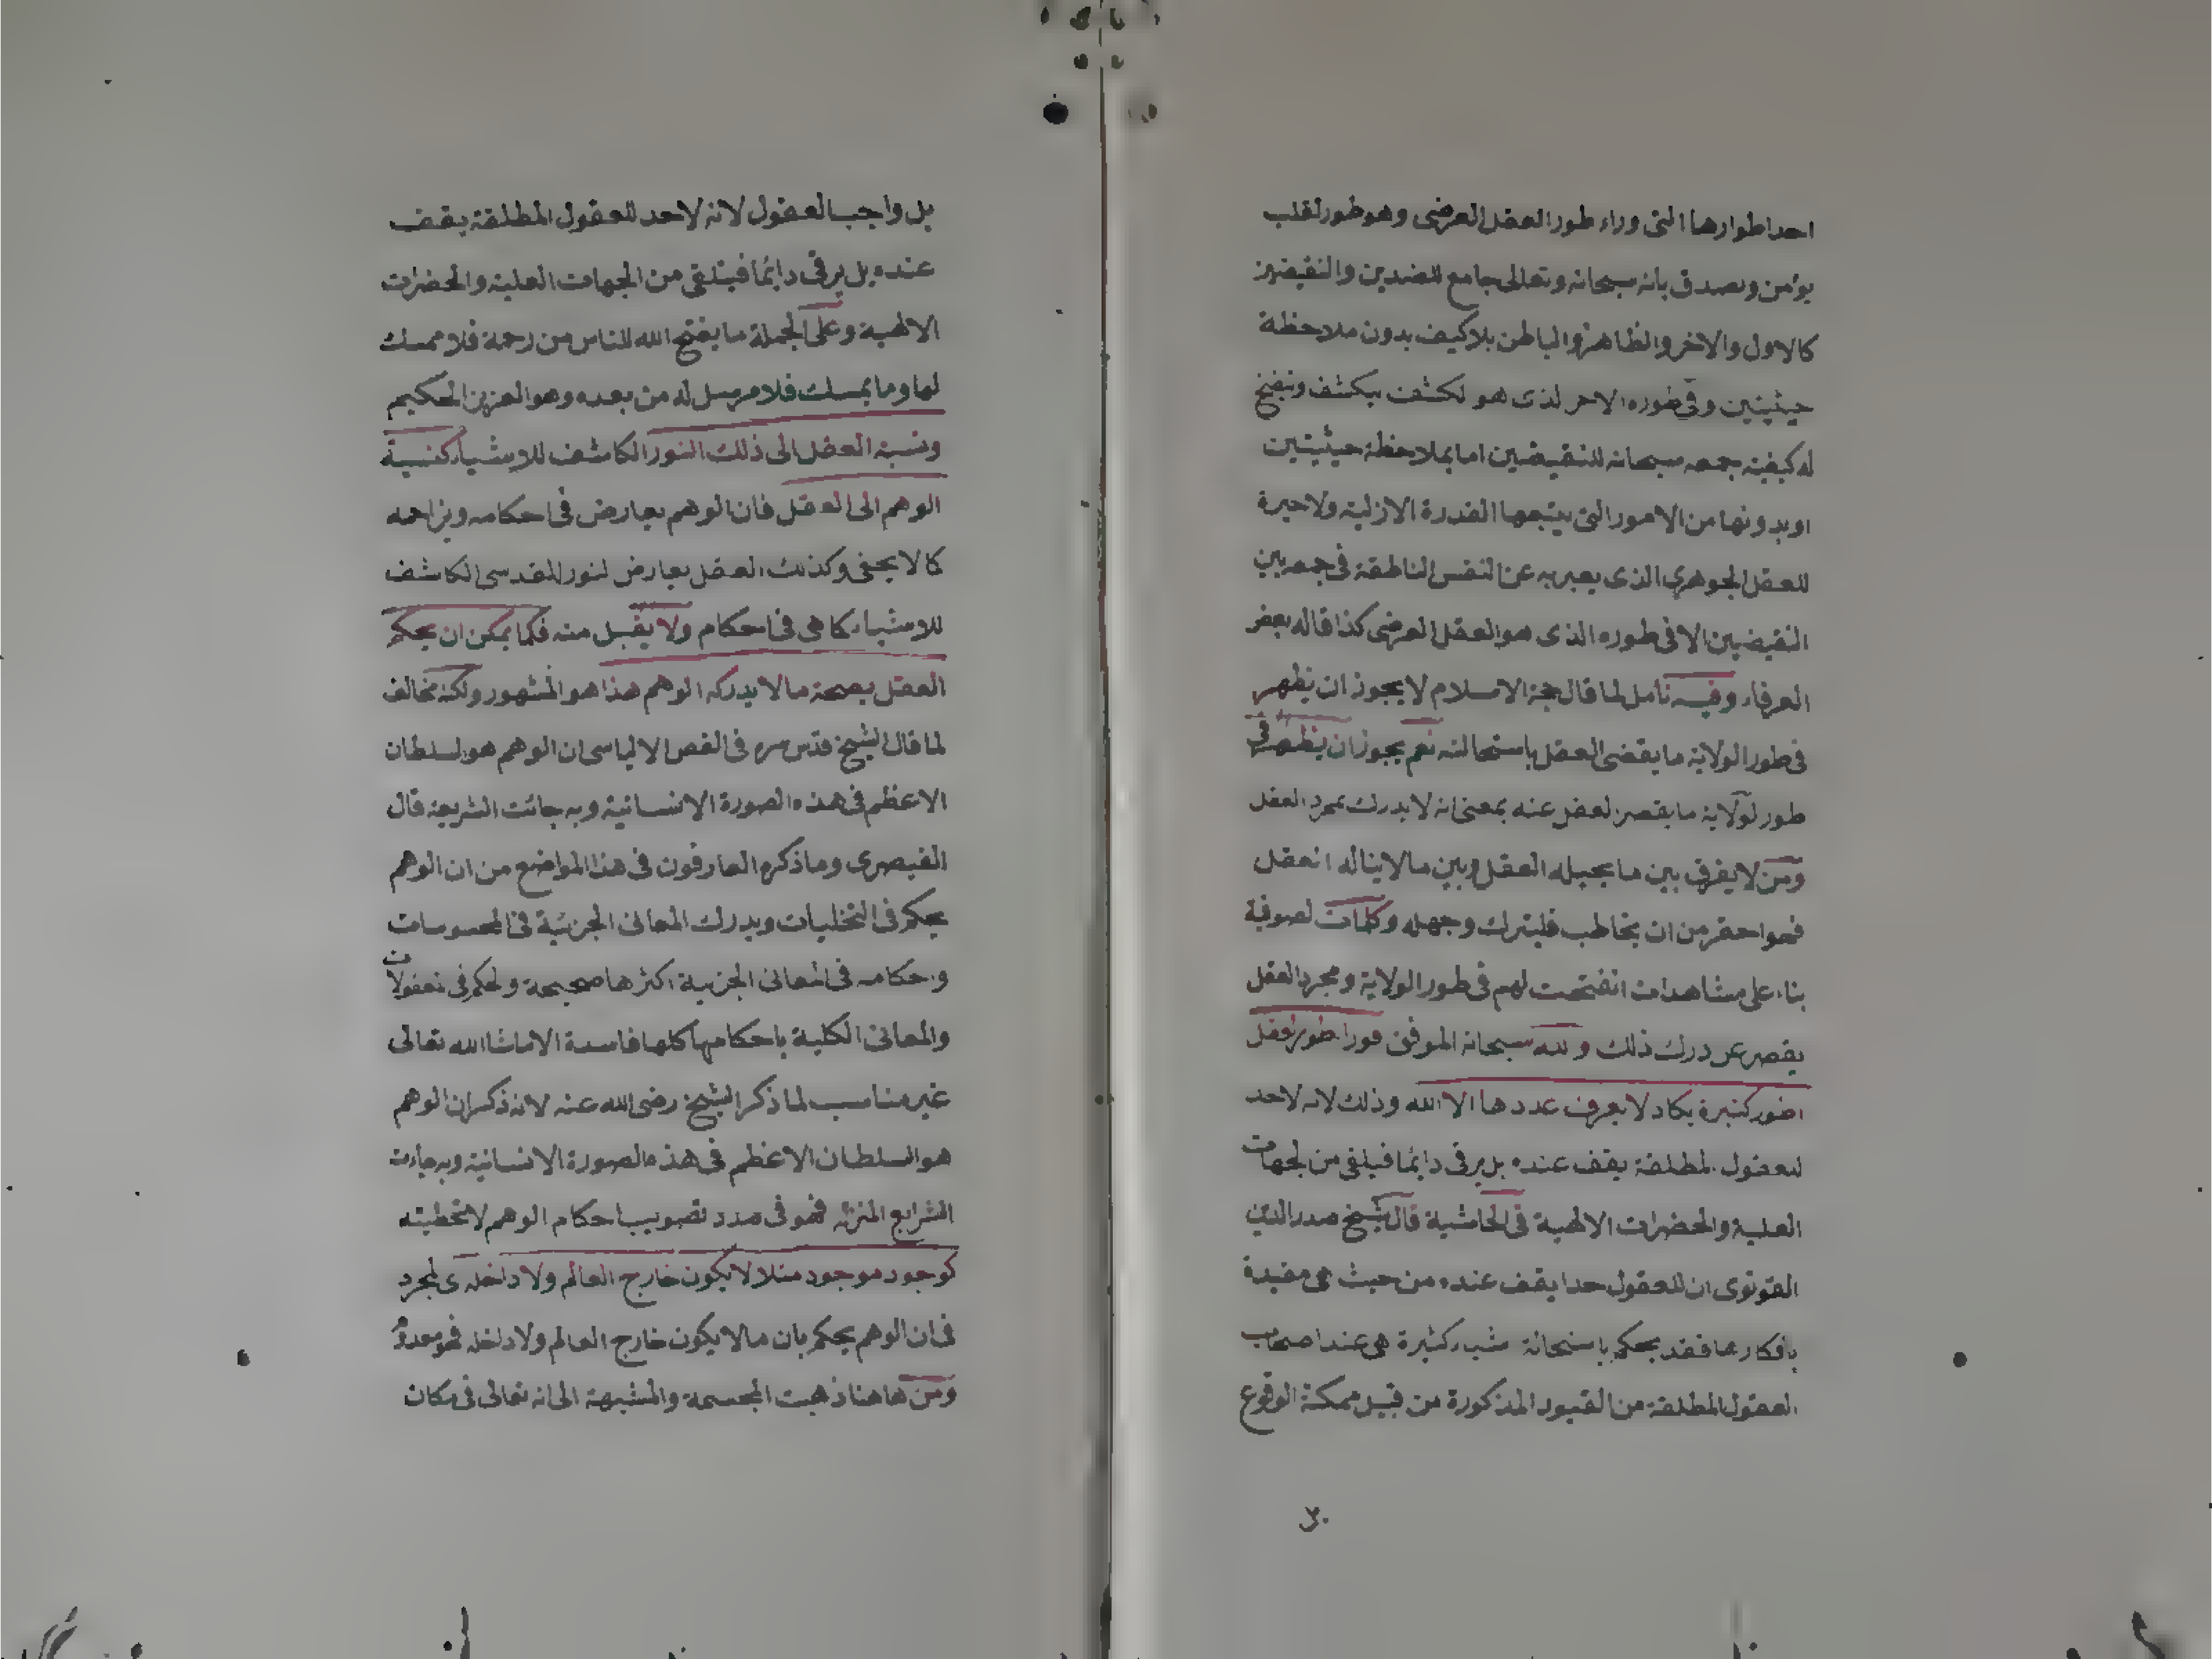 احد اطوارها التى وراء طور العقل العرضى وهو طور القلب
يؤمن ويصدق بانه سبحانه وتعالى جامع للضدين والنقيضين
كالاول والاخر والظاهر والباطن بلا كيف بدون ملاحظة
حيثيتين وفى طوره الاخر الذى هو الكشف ينكشف ويتضح
له كيفية جمعه سبحانه للنقيضين اما بملاحظة حيثيتين
او بدونها من الامور التى يتبعها القدرة الازلية ولا حيرة
للعقل الجوهرى الذى يعبر به عن النفس الناطقة فى جمعه بين
النقيضين الا فى طوره الذى هو العقل العرضى كذا قاله بعض
العرفاء وفيه تامل لما قال حجة الاسلام لا يجوز ان يظهر
فى طور الولاية ما يقضى العقل باستحالته نعم يجوز ان يظهر فى
طور الولاية ما يقصر العقل عنه بمعنى انه لا يدرك بمجرد العقل
ومن لا يفرق بين ما يحيله العقل وبين ما لا يناله العقل
فهو احقر من ان يخاطب فليترك وجهله وكلمات الصوفية
بناء على مشاهدات انفتحت لهم فى طور الولاية ومجرد العقل
يقصر عن درك ذلك والله سبحانه الموفق فوراء طور العقل
اطور كثيرة يكاد لا يعرف عددها الا الله وذلك لانه لا حد
للعقول المطلقة يقف عنده بل يرقى دائما فيلقى من الجهات
العلية والحضرات الالهية فى الحاشية قال الشيخ صدر الدين
القونوى ان للعقول حدا يقف عنده من حيث هى مقيدة
بافكارها فقد يحكم باستحالة اشياء كثيرة هى عند اصحاب
العقول المطلقة من القيود المذكورة من قبيل ممكنة الوقوع
٣٠
بل واجب العقول لانه لا حد للعقول المطلقة يقف
عنده بل يرقى دائما فيتلقى من الجهات العلية والحضرات
الالهية وعلى الجملة ما يفتح الله للناس من رحمة فلا ممسك
لها وما يمسك فلا مرسل له من بعده وهو العزيز الحكيم
ونسبة العقل الى ذلك النور الكاشف للاشياء كنسبة
الوهم الى العقل فان الوهم يعارض فى احكامه ويزاحمه
كما لا يخفى وكذلك العقل يعارض لنور القدسى الكاشف
للاشياء كما هى فى احكام ولا يقبل منه فكما يمكن ان يحكم
العقل بصحة ما لا يدركه الوهم هذا هو المشهور ولكنه مخالف
لما قال الشيخ قدس سره فى الفص الالياسى ان الوهم هو السلطان
الاعظم فى هذه الصورة الانسانية وبه جائت الشريعة قال
القيصرى وما ذكره العارفون فى هذا المواضع من ان الوهم
يحكم فى التخليات ويدرك المعانى الجزئية فى المحسوسات
واحكامه فى المعانى الجزئية اكثرها صحيحة ولحكم فى المعقولات
والمعانى الكلية باحكامها كلها فاسدة الا ما شا الله تعالى
غير مناسب لما ذكر الشيخ رضى الله عنه لانه ذكر ان الوهم
هو السلطان الاعظم فى هذه الصورة الانسانية وبه جاءت
الشرايع المنزلة فهو فى صدد تصويب احكام الوهم لا تخطيته
كوجود موجود مثلا لا يكون خارج العالم ولا داخله ى لمجرد
فى ان الوهم يحكم بان ما لا يكون خارج العالم ولا داخله فهو معدوم
ومن هاهنا ذهبت المجسمة والمشبهة الى انه تعالى فى مكان